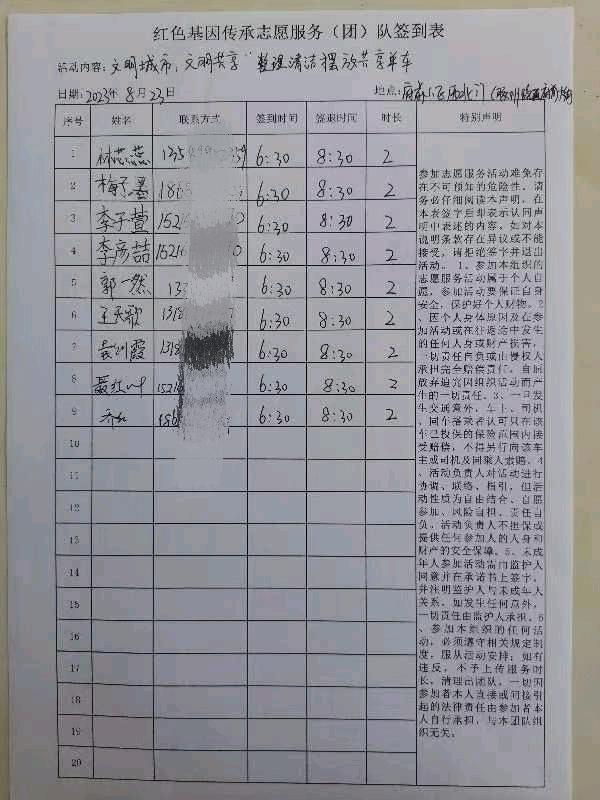 红色基因传承志愿服务（团）队签到表
活动内容：文明城市，文明共享"整理清洁摆放共享单车
日期：2023年8月23日 地点：
序号 姓名 联系方式 签到时间 签退时间 时长 特别声明
1 林燕蕊 6:30 8:30 2
2 梅子墨 6:30 8:30 2
3 李子萱 1521 6:30 8:30 2
4 李彦喆 15216 6:30 8:30 2
5 郭一然 6:30 8:30 2
6 王天歌 1318 6:30 8:30 2
7 1318 6:30 8:30 2
8 聂红叶 1521 6:30 8:30 2
9 乔红 6:30 8:30 2
10
11
12
13
14
15
16
17
18
19
20
参加志愿服务活动难免存
在不可预知的危险性。请
务必仔细阅读本声明，在
本表签字后却表示认同声
明中表述的内容。如对本
说明条款存在异议或不能
接受，请拒绝签字并退出
活动。1、参加本组织的
志愿服务活动属于个人自
愿，参加活动要保证自身
安全，保护好个人财物。2
、因个人身体原因及在参
加活动或在往返途中发生
的任何人身或财产损害，
一切责任自负或由侵权人
承担完全赔偿责任。自愿
放弃追究因组织活动而产
生的一切责任。3、一旦发
生交通意外，车主、司机
、同车搭乘者认可只在该
车已投保的保险范围内接
受赔偿，不得另行向该车
主或司机及同乘人索赔。4
、活动负责人对活动进行
协调、联络、指引，但活
动性质为自由结合、自愿
参加、风险自担、责任自
负。活动负责人不担保或
提供任何参加人的人身和
财产的安全保障。5、未成
年人参加活动需由监护人
同意并在承诺书上签字，
并注明监护人与未成年人
关系。如发生任何意外，
一切责任由监护人承担。6
、参加本组织的任何活
动，必须遵守相关规定制
度，服从活动安排；如有
违反，不予上传服务时
长，清理出团队。一切因
参加者本人直接或间接引
起的法律责任由参加者本
人自行承担，与本团队组
织无关。